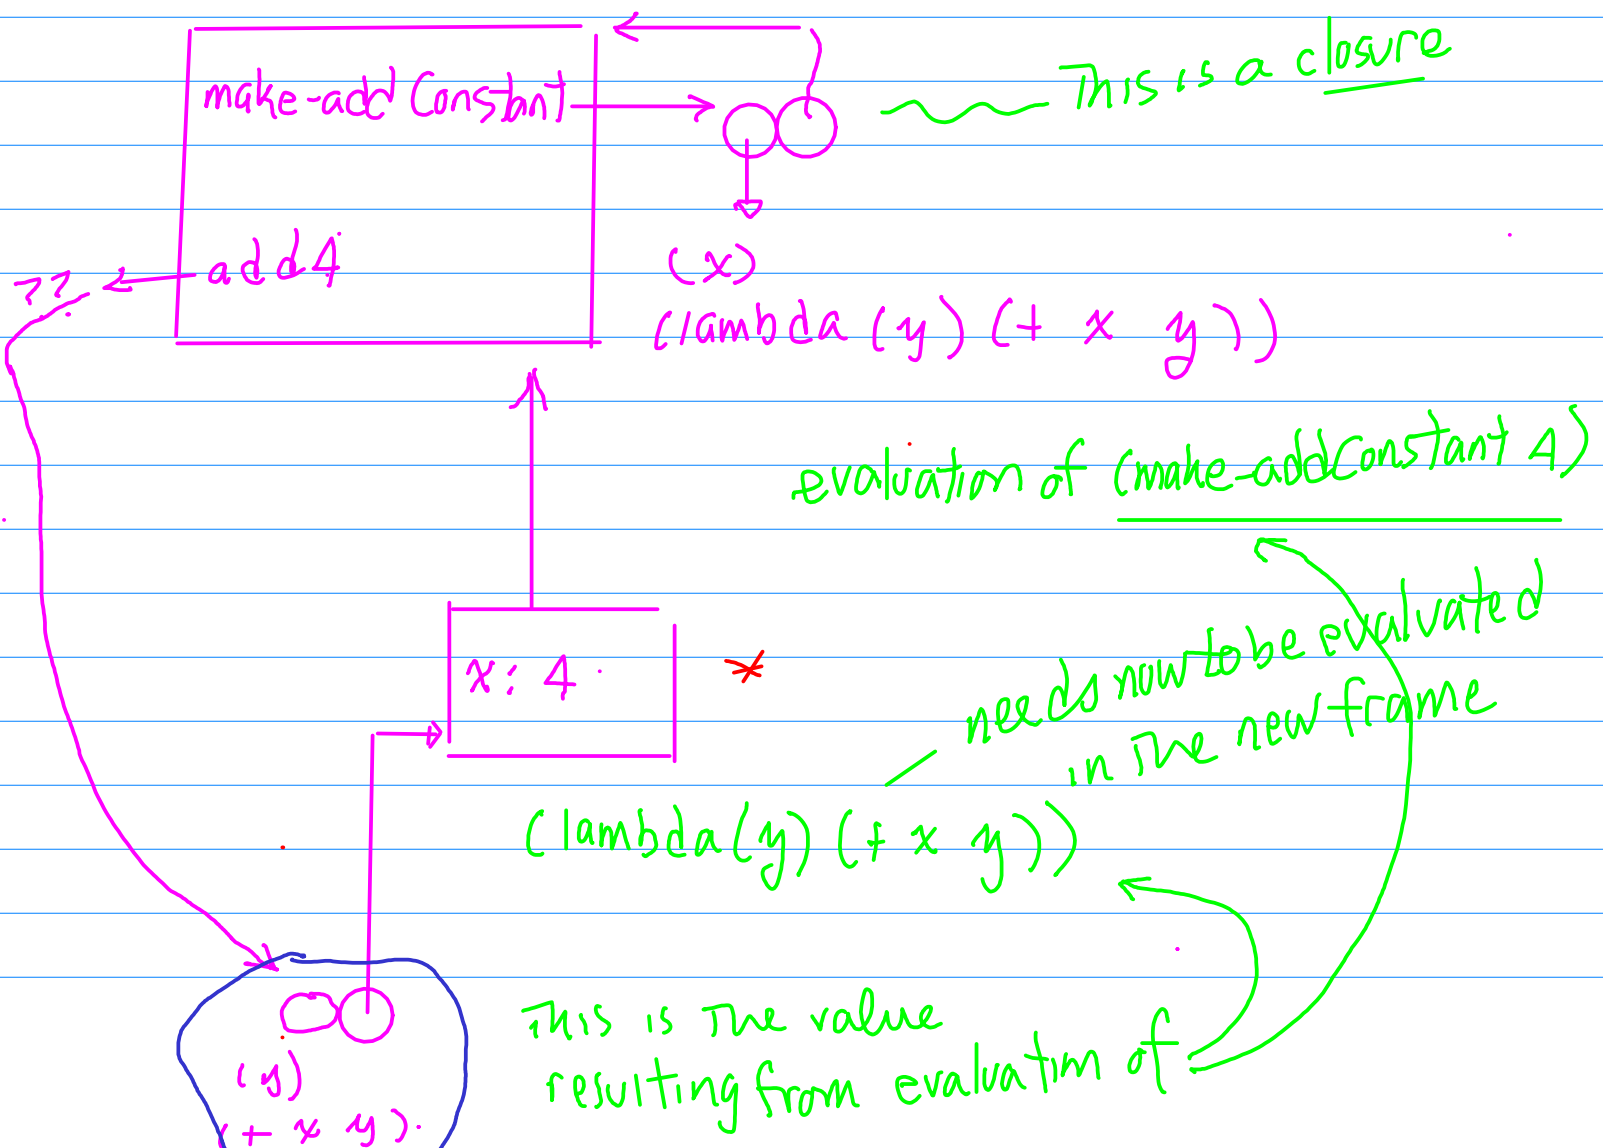 make-addConstant
This is a closure
add4
??
(x)
(lambda (y) (+ x y))
evaluation of (make-addConstant 4)
x: 4
needs now to be evaluated
in the new frame
(lambda (y) (+ x y))
This is the value
resulting from evaluation of
(y)
(+ x y)